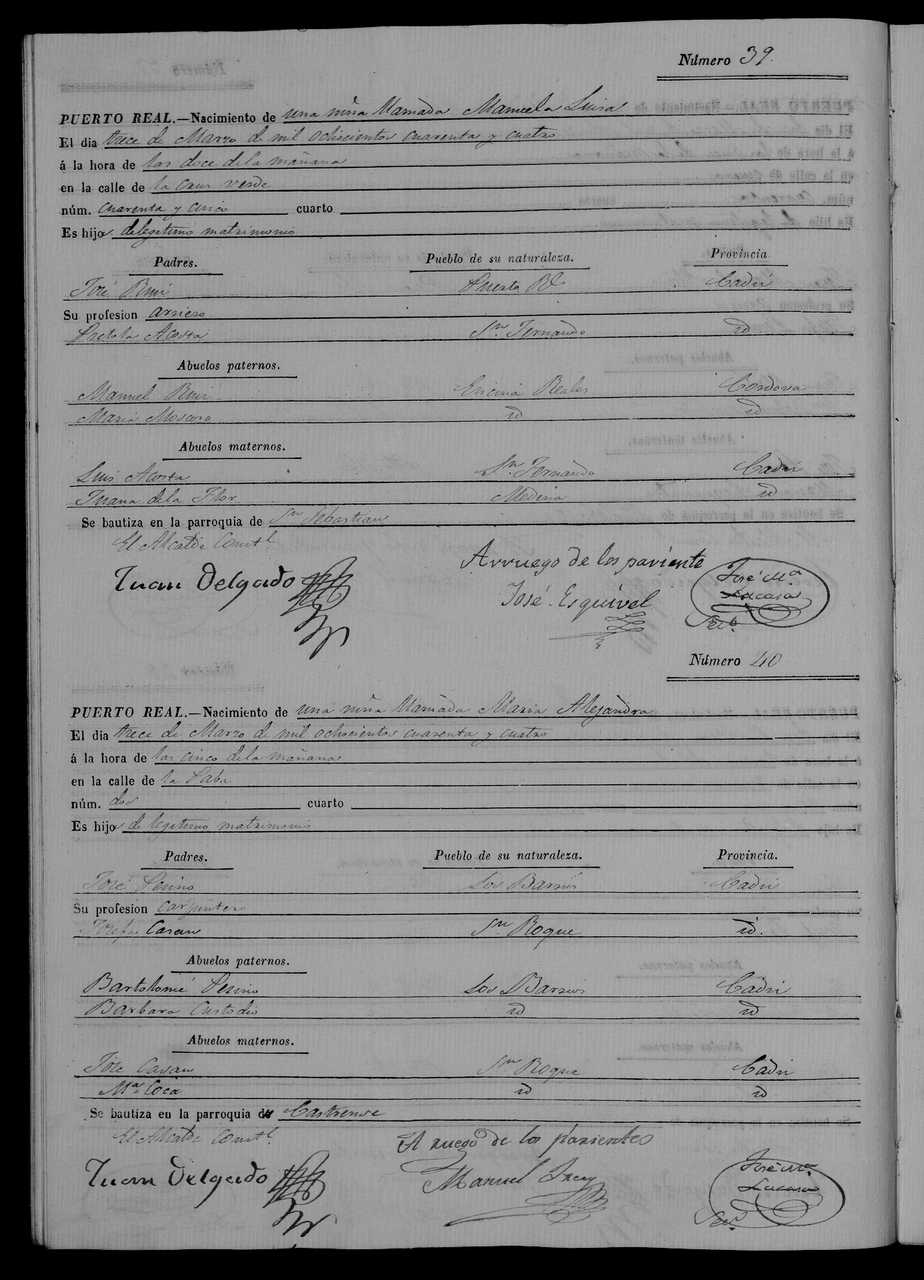 Número 39.
PUERTO REAL.—Nacimiento de una niña llamada Manuela Luisa
El dia trece de Marzo d mil ochocientos cuarenta y cuatro
á la hora de las doce de la mañana
en la calle de la Cruz verde
núm. cuarenta y cinco cuarto
Es hijo de legitimo matrimonio
Padres. Pueblo de su naturaleza. Provincia
José Ruiz Puerto Rl Cadiz
Su profesion arriero
Acosta Sn. Fernando id
Abuelos paternos.
Manuel Ruiz Encina Reales Cordova
Maria id id
Abuelos maternos.
Luis Acosta Sn. Fernando Cadiz
Juana de la Flor Medina id
Se bautiza en la parroquia de Sn Sebastian
El Alcalde Constl.
Arruego de los pariente
Juan Delgado José Esquivel José Ma. Lacasa
Srio.
Número 40
PUERTO REAL.—Nacimiento de una niña llamada Maria Alejandra
El dia trece de Marzo d mil ochocientos cuarenta y cuatro
á la hora de las cinco de la mañana
en la calle de la
núm. dos cuarto
Es hijo de legitimo matrimonio
Padres. Pueblo de su naturaleza. Provincia.
José Los Barrios Cadiz
Su profesion carpintero
Josefa Casau Sn Roque id.
Abuelos paternos.
Bartolomé Los Barrios Cadiz
Barbara Custodio id id
Abuelos maternos.
José Casau Sn Roque Cadiz
Ma. Coca id id
Se bautiza en la parroquia de Castrense
El Alcalde Constl.
A ruego de los parientes
Juan Delgado Manuel José Ma. Lacasa
Srio.